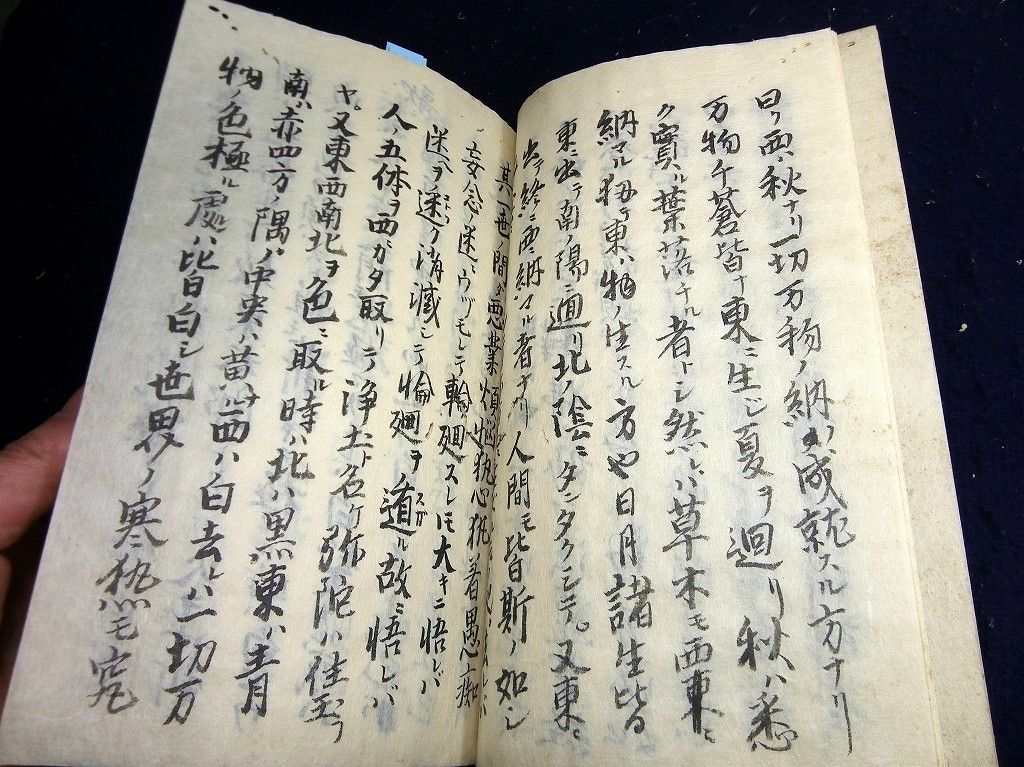 曰ク西ハ秋ナリ一切万物ノ納リ成就スル方ナリ
万物千蒼皆ナ東ニ生シ夏ヲ廻リ秋ハ悉
ク實ル葉落チル者トシ然レハ草木モ西東ニ
納マル扨テ東ハ物ノ生スル方也日月諸生皆
東ニ出テ南ノ陽ニ廻リ北ノ陰ニタンタクシテ。又東ニ
出テ終ニ西ニ納マル者ナリ人間モ皆斯ノ如シ
其一世ノ間タ悪業煩悩執心執著愚痴
妄念ノ迷ニウツモレテ輪廻スレモ大キニ悟レバ
迷ヲ迷ク消滅シテ輪廻ヲ道ル故ニ悟レバ
人ノ五体ヲ西ガタ取リテ浄土ト名ケ弥陀ハ住玉フ
ヤ。又東西南北ヲ色ニ取ル時ハ北ハ黒東ハ青
南ハ赤四方ノ隅ノ中央ハ黄ナ西ハ白去レハ一切万
物ノ色極ル處ハ皆白シ世界ノ寒熱モ究